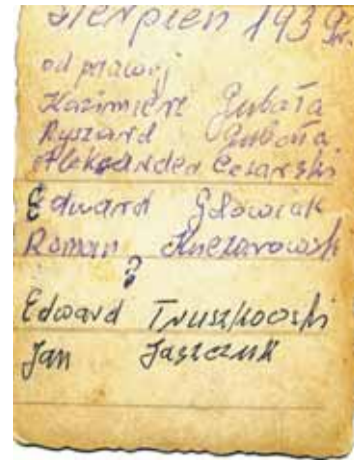 Sierpien 1939 r.
od prawej
Kazimierz Gubała
Ryszard Gubała
Aleksander Cesarski
Edward Głowiak
Roman
?
Edward Truszkowski
Jan Jaszczuk